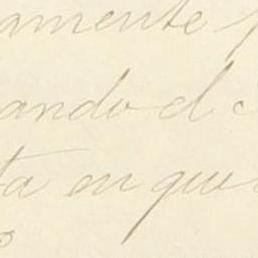 amente
ando el
ta en que